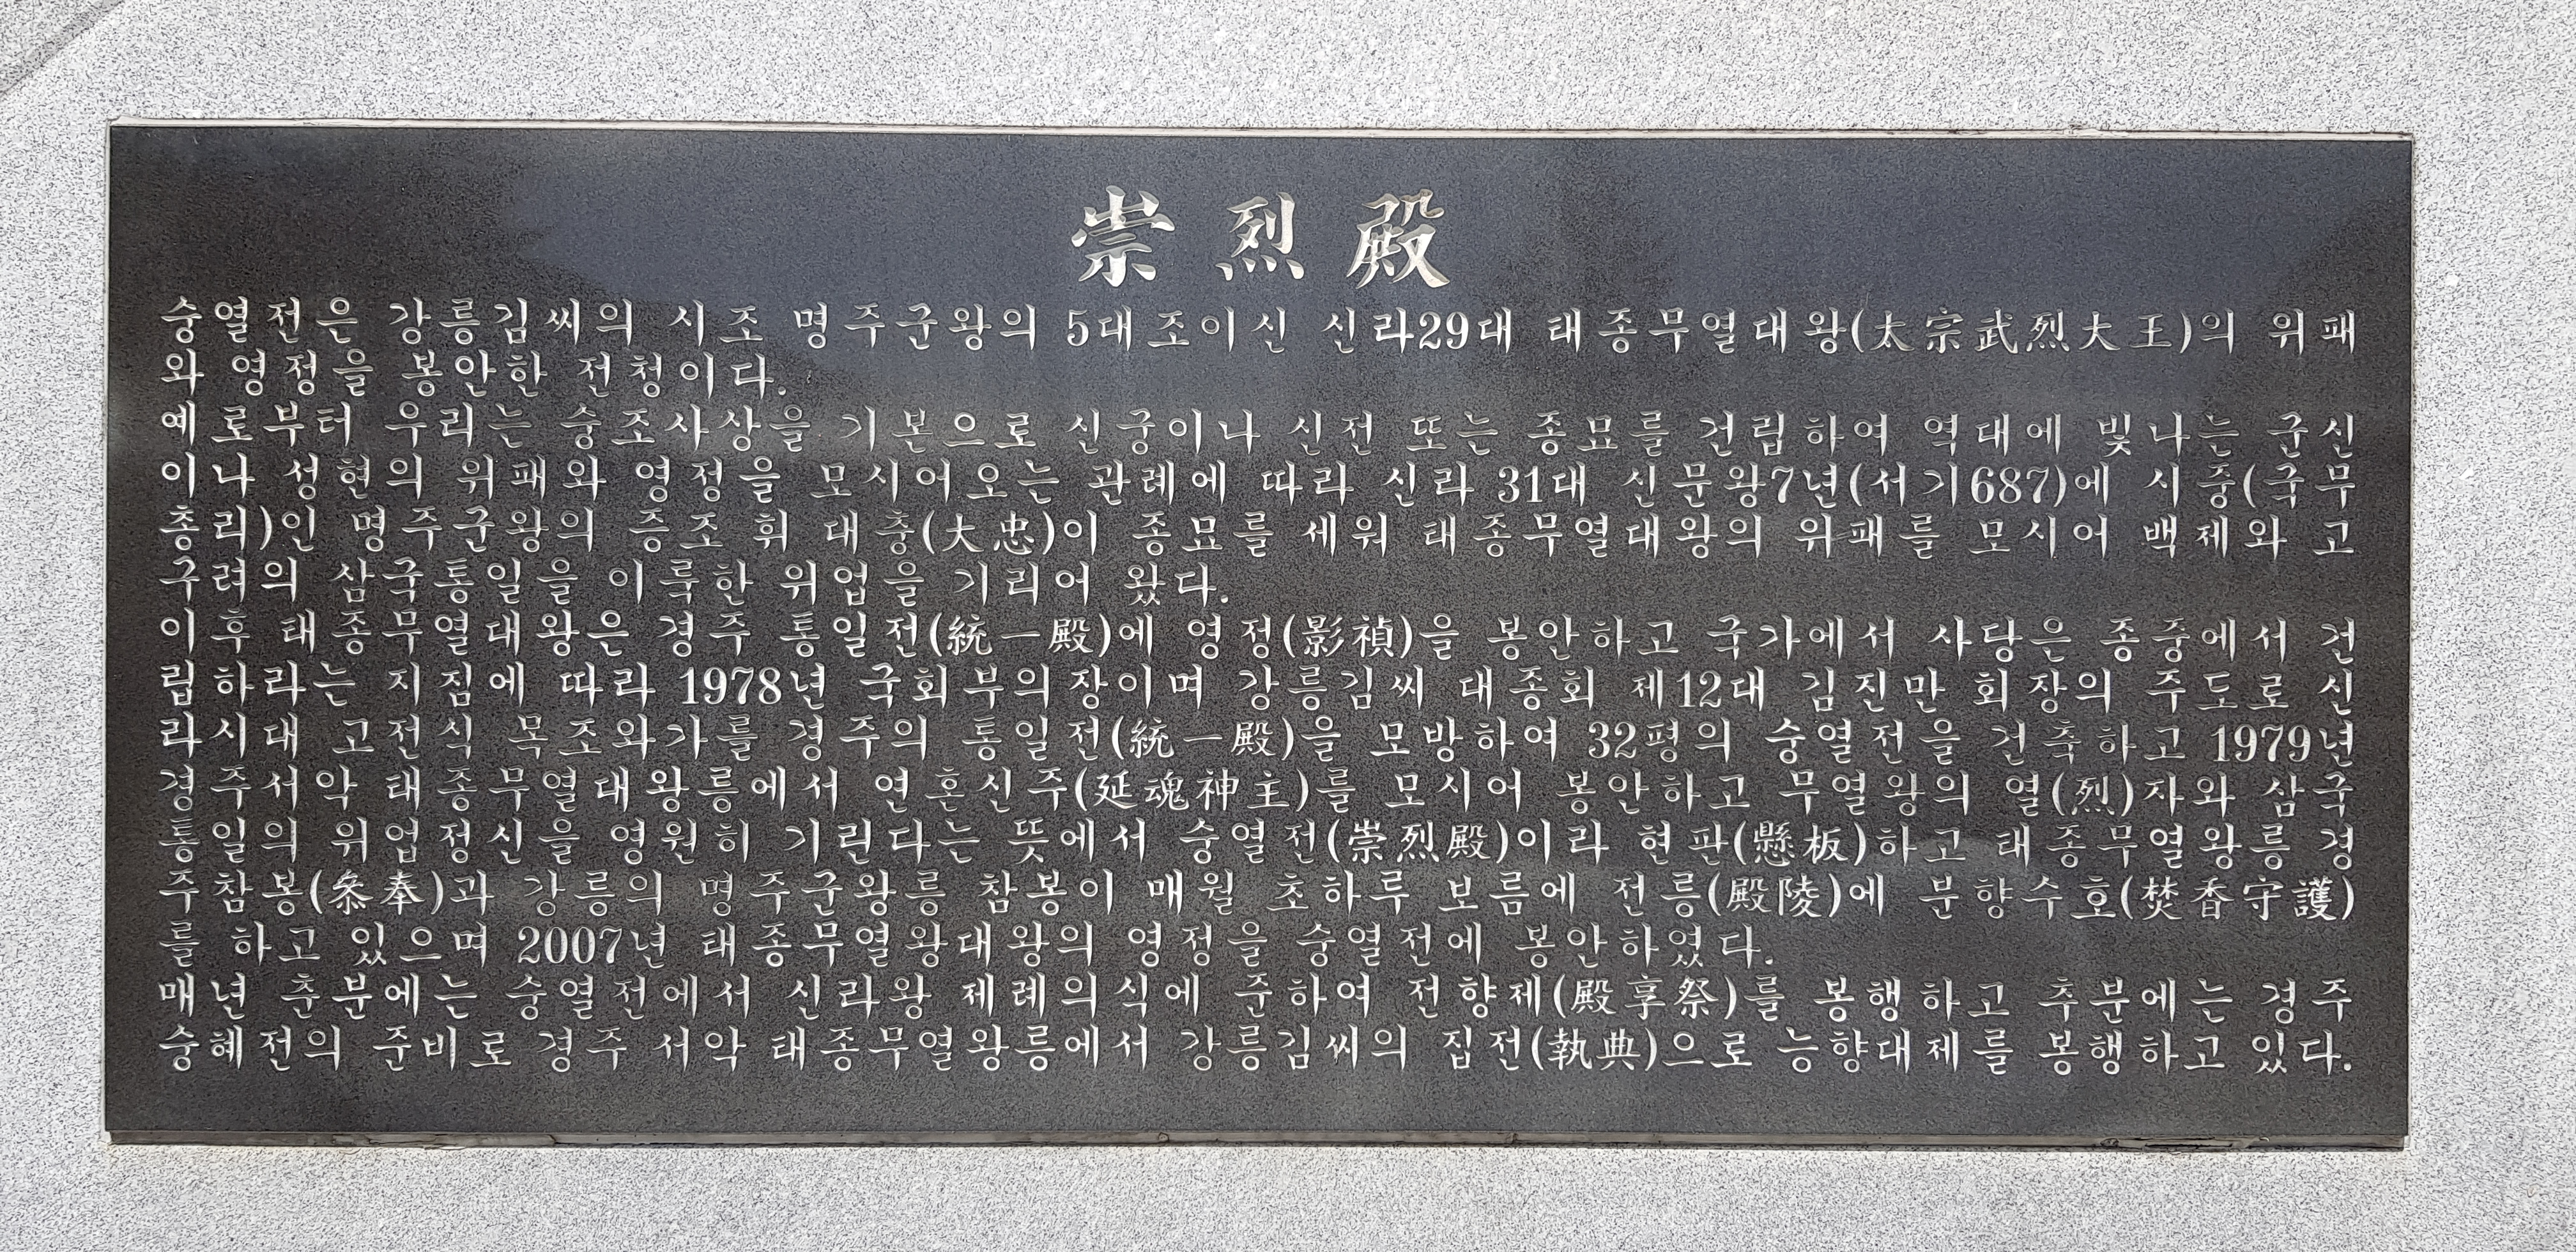 崇烈殿
숭열전은 강릉김씨의 시조 명주군왕의 5대조이신 신라29대 태종무열대왕(太宗武烈大王)의 위패
와 영정을 봉안한 전청이다.
예로부터 우리는 숭조사상을 기본으로 신궁이나 신전 또는 종묘를 건립하여 역대에 빛나는 군신
이나 성현의 위패와 영정을 모시어오는 관례에 따라 신라 31대 신문왕7년(서기687)에 시중(국무
총리)인 명주군왕의 증조 휘 대충(大忠)이 종묘를 세워 태종무열대왕의 위패를 모시어 백제와 고
구려의 삼국통일을 이룩한 위업을 기리어 왔다.
이후 태종무열대왕은 경주 통일전(統一殿)에 영정(影禎)을 봉안하고 국가에서 사당은 종중에서 건
립하라는 지침에 따라 1978년 국회부의장이며 강릉김씨 대종회 제12대 김진만 회장의 주도로 신
라시대 고전식 목조와가를 경주의 통일전(統一殿)을 모방하여 32평의 숭열전을 건축하고 1979년
경주서악 태종무열대왕릉에서 연혼신주(延魂神主)를 모시어 봉안하고 무열왕의 열(烈)자와 삼국
통일의 위업정신을 영원히 기린다는 뜻에서 숭열전(崇烈殿)이라 현판(懸板)하고 태종무열왕릉 경
주참봉(叅奉)과 강릉의 명주군왕릉 참봉이 매월 초하루 보름에 전릉(殿陵)에 분향수호(焚香守護)
를 하고 있으며 2007년 태종무열왕대왕의 영정을 숭열전에 봉안하였다.
매년 춘분에는 숭열전에서 신라왕 제례의식에 준하여 전향제(殿享祭)를 봉행하고 추분에는 경주
숭혜전의 준비로 경주 서악 태종무열왕릉에서 강릉김씨의 집전(執典)으로 능향대제를 봉행하고 있다.